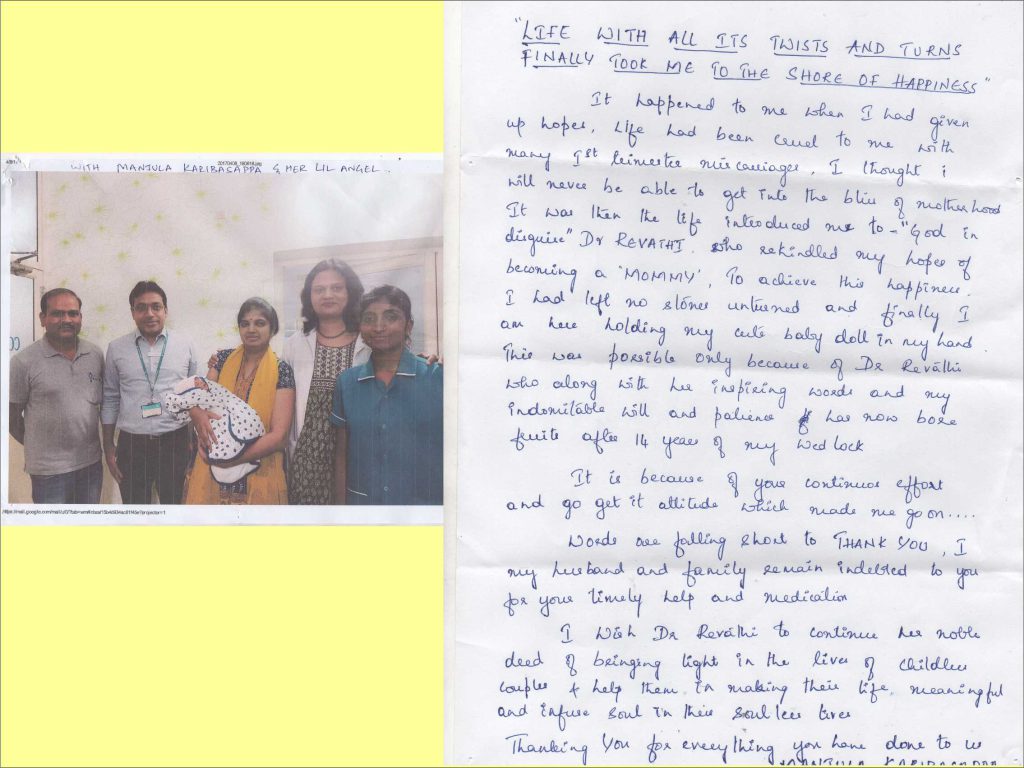 20170408_160819.jpg
WITH MANJULA KARIBASAPPA & HER LIL ANGEL..
"LIFE WITH ALL ITS TWISTS AND TURNS
FINALLY TOOK ME TO THE SHORE OF HAPPINESS"
It happened to me when I had given
up hopes. Life had been cruel to me with
many 1st trimester miscarriages. I thought i
will never be able to get into the bliss of motherhood
It was then the life introduced me to - "God in
disguise" Dr REVATHI. who rekindled my hopes of
becoming a 'MOMMY'. To achieve this happiness.
I had left no stones unturned and finally I
am here holding my cute baby doll in my hand.
This was possible only because of Dr Revathi
who along with her inspiring words and my
indomitable will and patience has now bore
fruits after 14 years of my Wed lock
It is because of your continuos effort
and go get it attitude which made me go on....
Words are falling short to THANK YOU, I
my husband and family remain indebted to you
for your timely help and medication
I wish Dr Revathi to continue her noble
deed of bringing light in the lives of childless
couples & help them in making their life meaningful
and infuse soul in their soul less lives
Thanking You for everything you have done to us
MANJULA KARIBASAPPA